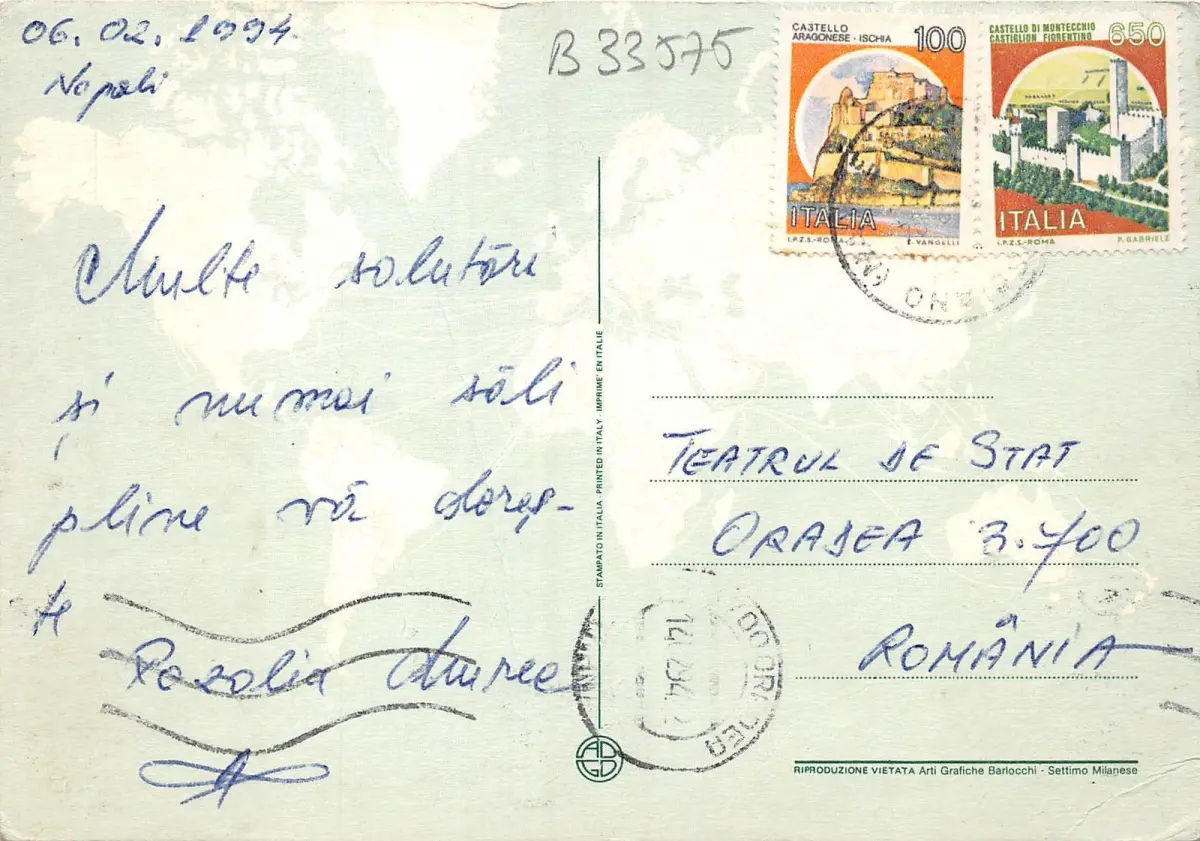 06.02.1994.
Napoli
B 33575
CASTELLO
ARAGONESE - ISCHIA 100
ITALIA
I.P.Z.S.-ROMA E. VANGELLI
CASTELLO DI MONTECCHIO
CASTIGLION FIORENTINO 650
ITALIA
I.P.Z.S.-ROMA P. GABRIELE
Multe salutări
și numai săli
pline vă doreș-
te
Rozalia
STAMPATO IN ITALIA - PRINTED IN ITALY - IMPRIMÉ EN ITALIE
TEATRUL DE STAT
ORADEA 3.700
ROMÂNIA
14.02.94
AD
GD
RIPRODUZIONE VIETATA Arti Grafiche Barlocchi - Settimo Milanese